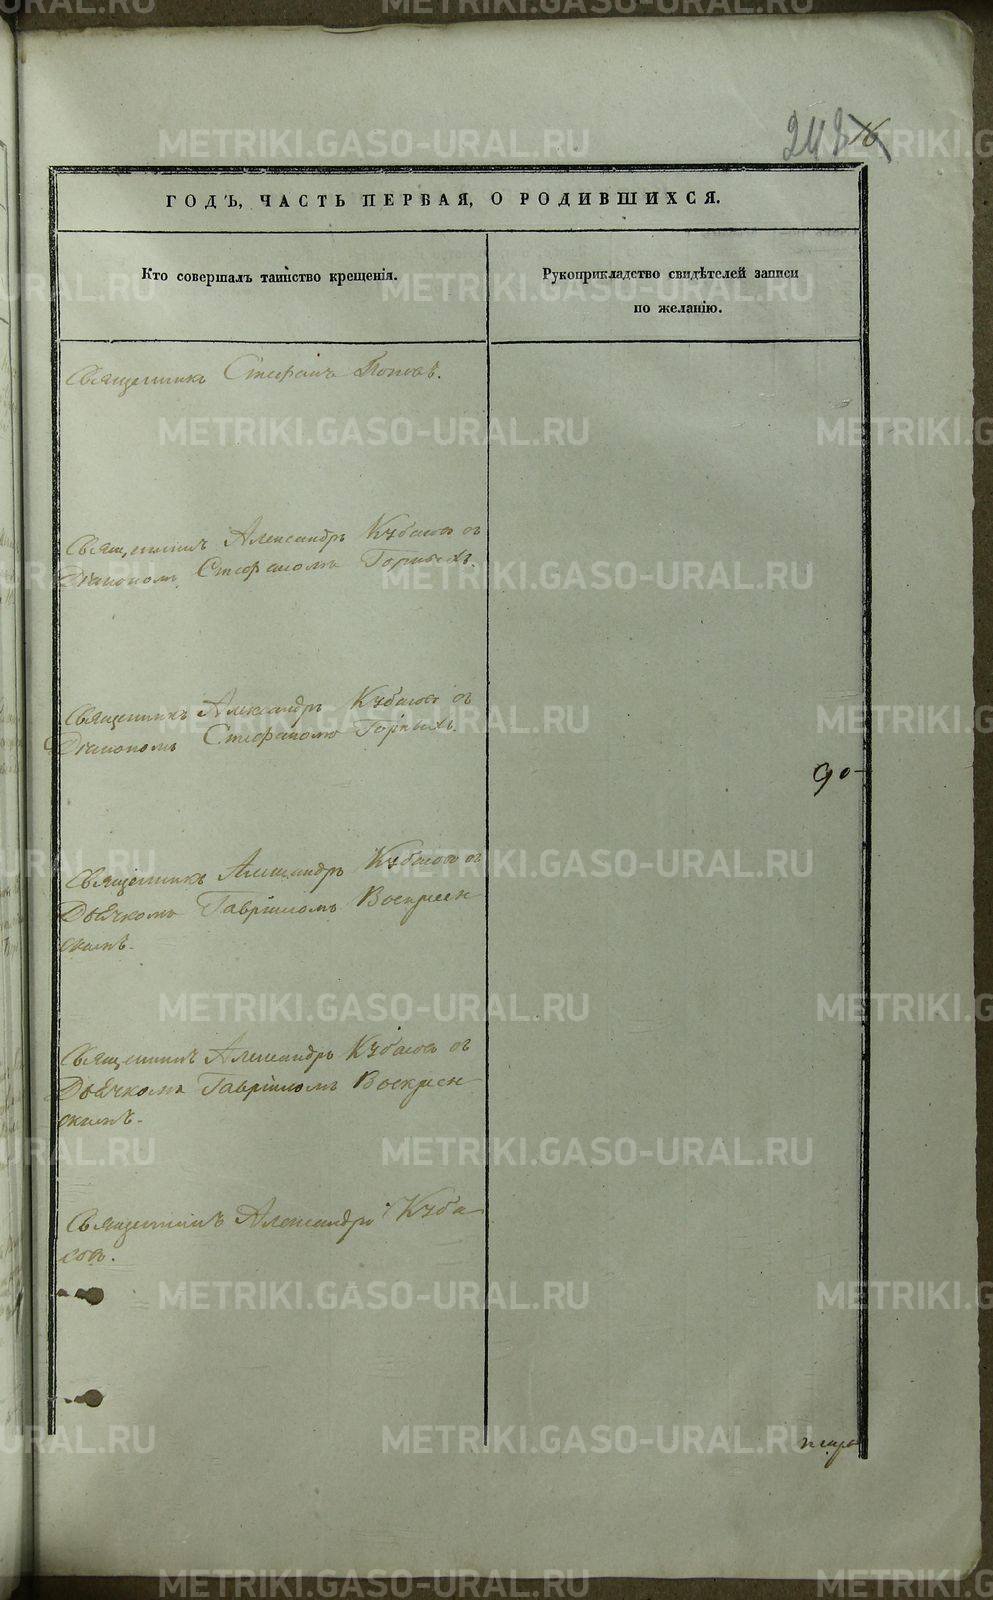 248
ГОДЪ, ЧАСТЬ ПЕРВАЯ, О РОДИВШИХСЯ.
Кто совершалъ таинство крещенія.
Рукоприкладство свидѣтелей записи
по желанію.
Священникъ Стефанъ Поповъ.
Священникъ Александръ Кубасовъ съ
Діакономъ Стефаномъ Горныхъ.
Священникъ Александръ Кубасовъ съ
Діакономъ Стефаномъ Горныхъ.
90-
Священникъ Александръ Кубасовъ съ
Дьячкомъ Гавріиломъ Воскресен
скимъ.
Священникъ Александръ Кубасовъ съ
Дьячкомъ Гавріиломъ Воскресен
скимъ.
Священникъ Александръ Куба-
совъ.
METRIKI.GASO-URAL.RU